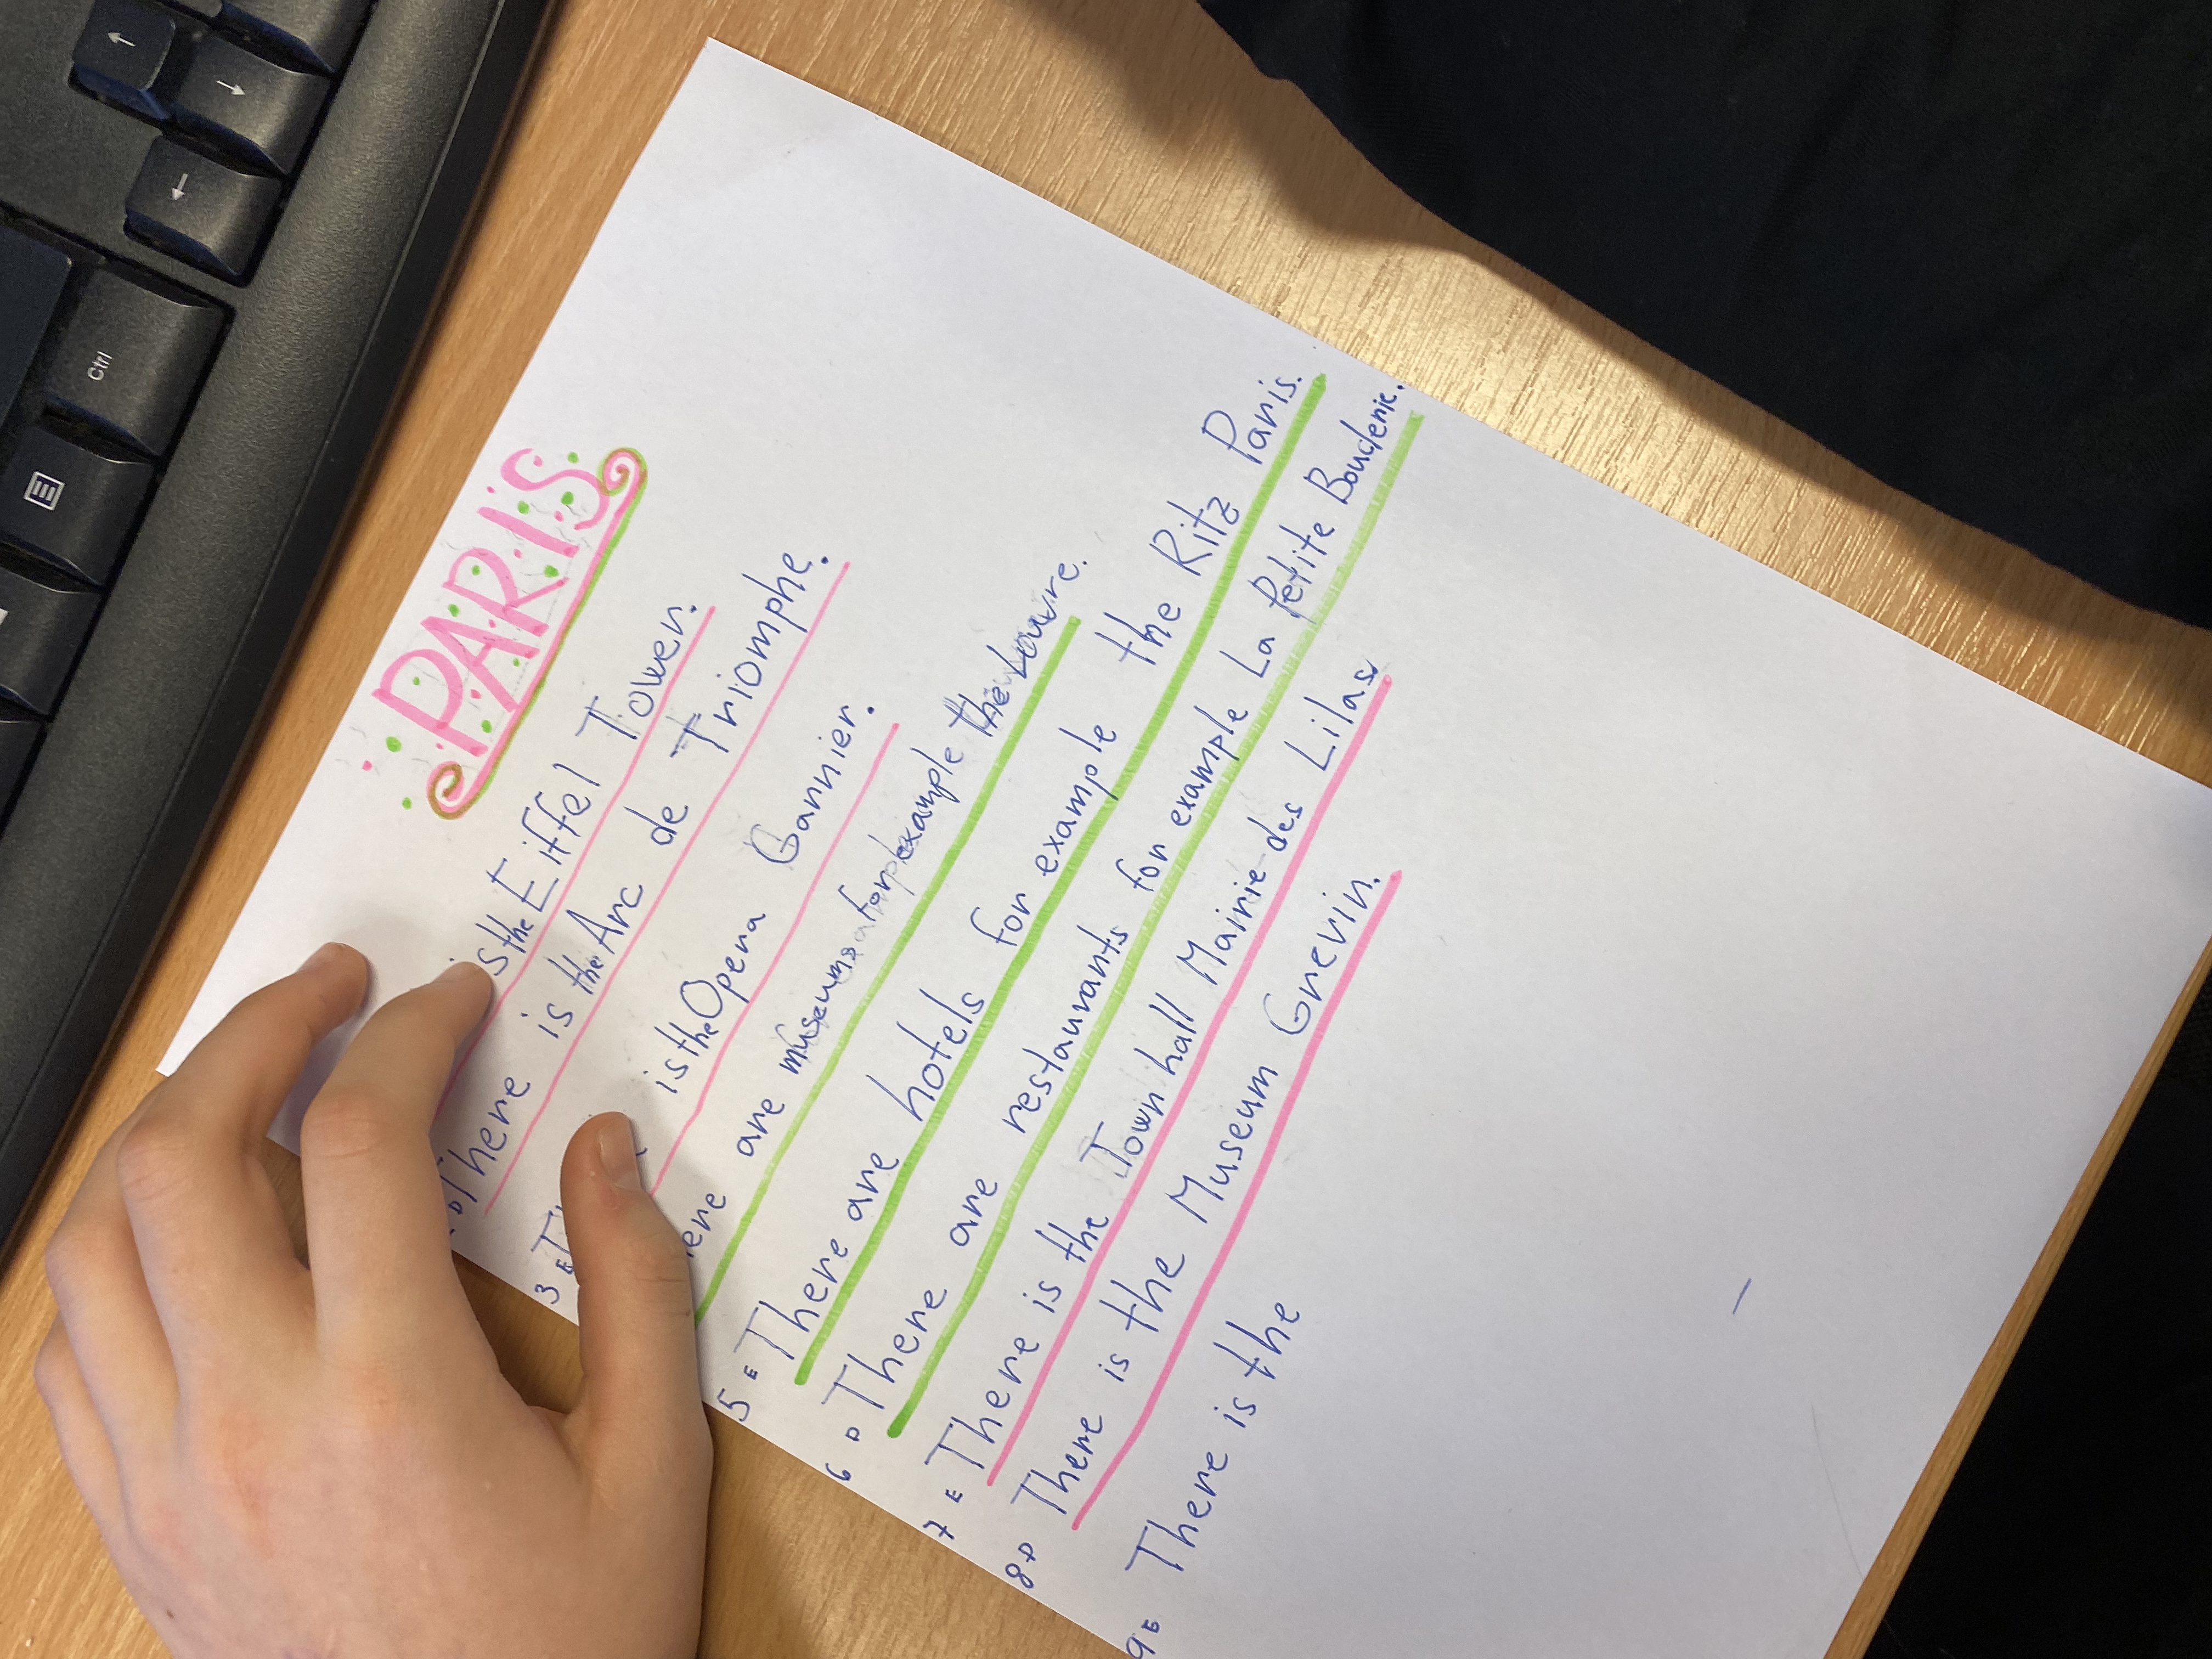 PARIS
is the Eiffel Tower.
D There is the Arc de Triomphe.
3 E is the Opera Garnier.
are museums for example the Louvre.
5 E There are hotels for example the Ritz Paris.
6 D There are restaurants for example La Petite
7 E There is the Town hall Mairie des Lilas.
8 D There is the Museum Grevin.
9 E There is the
Ctrl